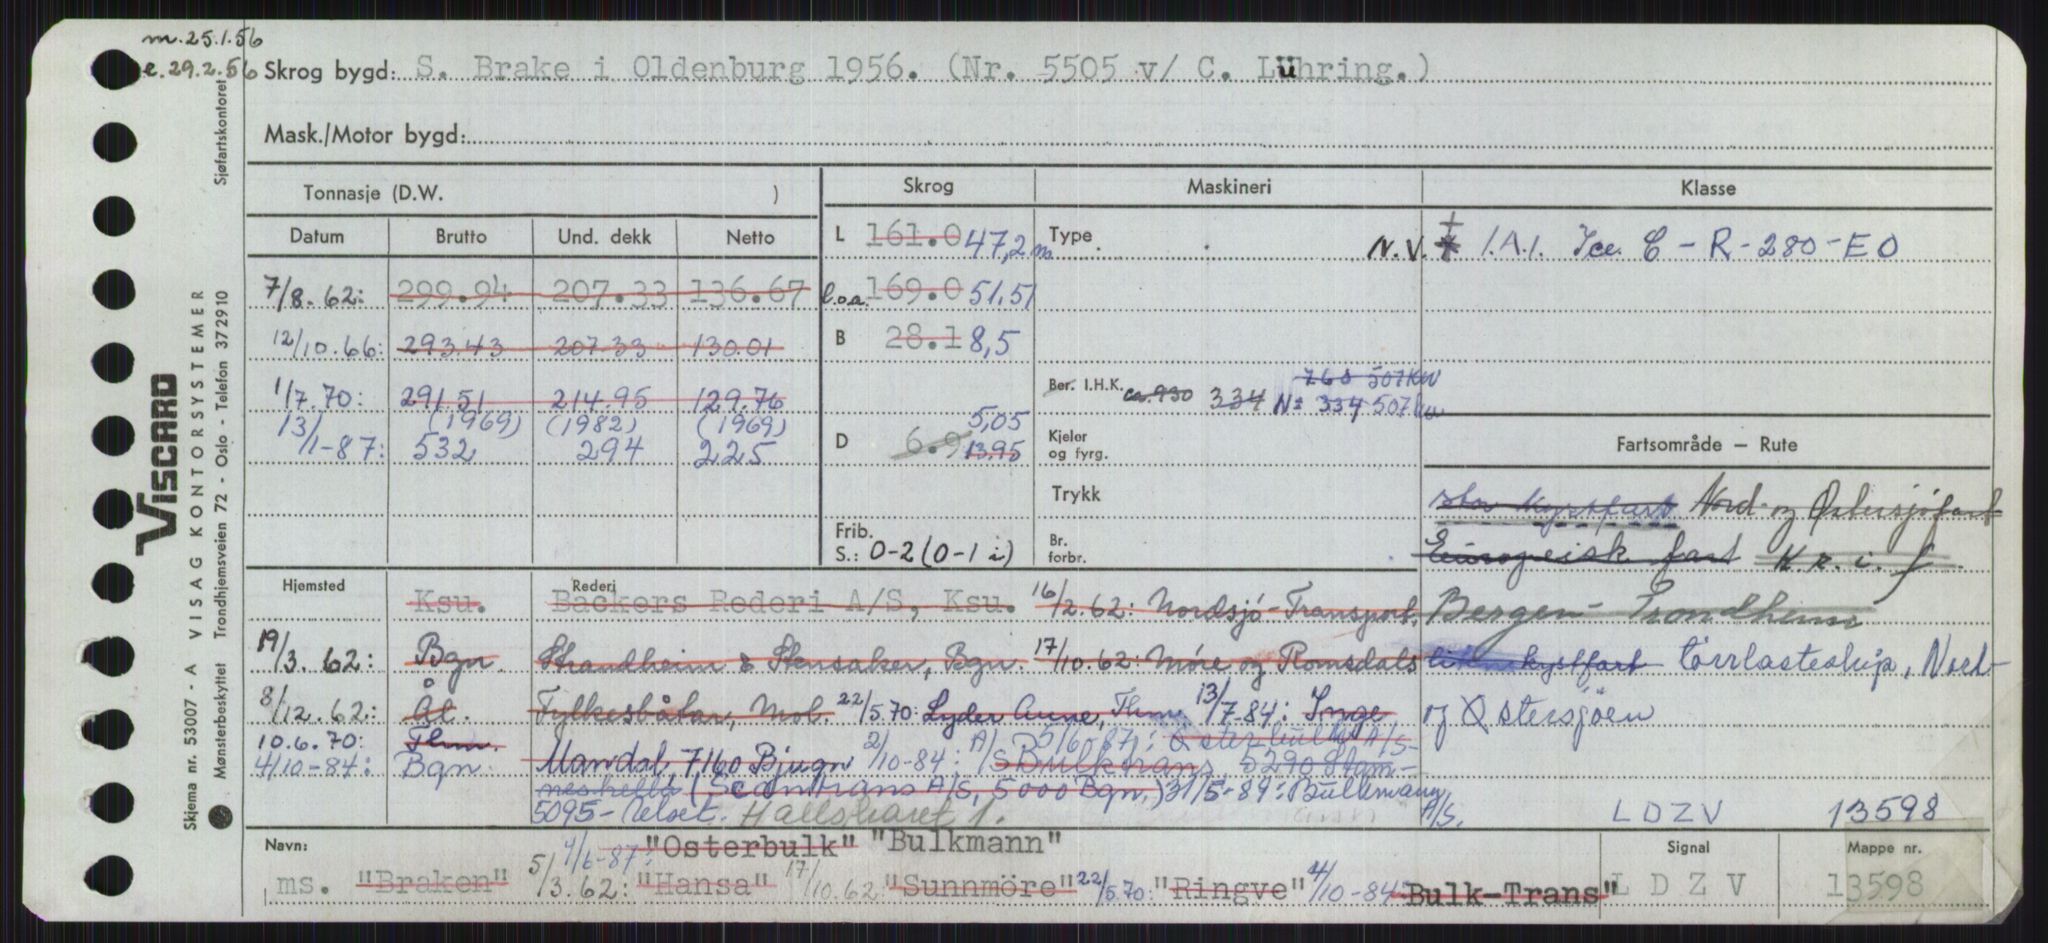 m. 25.1.56
e. 29.2.56 Skrog bygd: S. Brake i Oldenburg 1956. (Nr. 5505 v/ C. Luhring.)
Mask./Motor bygd:
Tonnasje (D.W. )
Skrog Maskineri Klasse
Datum Brutto Und. dekk Netto
L 161.0 47,2 m Type N.V. 1.A.1. Ice C - R - 280 - EO
7/8.62: 299.94 207.33 136.67 l.o.a. 169.0 51,51
12/10.66: 293.43 207.33 130.01 B 28.1 8,5
Ber. I.H.K. ca. 930 334 768 507 KW
No 334 507 kw
1/7.70: 291.51 214.95 129.76
(1969) (1982) (1969)
13/1-87: 532 294 225
D 6.9 5,05 13.95 Kjeler og fyrg.
Fartsområde — Rute
Trykk
stor kystfart Nord- og Østersjöfart
Frib. S.: 0-2 (0-1 i) Br. forbr.
Europeisk fart K.r.i.f.
Hjemsted Rederi
Ksu. Backers Rederi A/S, Ksu. 16/2.62: Nordsjö-Transport, Bergen - Trondheim
19/3.62: Bgn Strandheim & Stensaker, Bgn. 17/10.62: Möre og Romsdals liten kystfart törrlasteskip, Nord-
8/12.62: Ål. Fylkesbåtar, Mol. 22/5.70: Lyder Aune, Thm. 13/7-84: Inge og Östersjöen
10.6.70: Thm. A/S 5/6-87: Osterbulk A/S-
4/10-84: Bgn. Mandal, 7160 Bjugn 2/10-84: A/S Bulktrans, 5290 Stam-
neshella (Scantrans A/S, 5000 Bgn.) 31/5-89: Bulkmann
5095 - Ulset. Hallsharet 1. A/S. LDZV 13598
Navn: 4/6-87: "Osterbulk" "Bulkmann" Signal Mappe nr.
ms. "Braken" 5/3.62: "Hansa" 17/10.62: "Sunnmöre" 22/5.70: "Ringve" 4/10-84: Bulk-Trans" LDZV 13598
VISCARD
VISAG KONTORSYSTEMER Sjøfartskontoret
Skjema nr. 53007 - A
Mønsterbeskyttet Trondhjemsveien 72 - Oslo - Telefon 372910